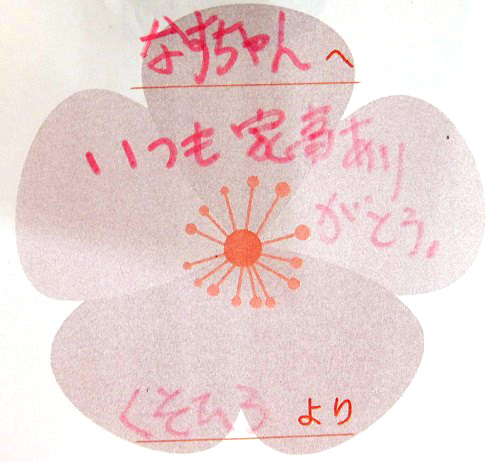 なすちゃんへ
いつも家事あり
がとう。
くそひろ より